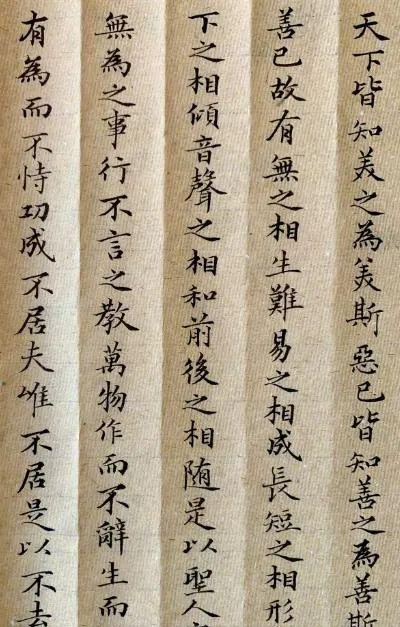 天下皆知美之為美斯惡已皆知善之為善斯
善已故有無之相生難易之相成長短之相形
下之相傾音聲之相和前後之相随是以聖人
無為之事行不言之教萬物作而不辭生而
有為而不恃功成不居夫唯不居是以不去